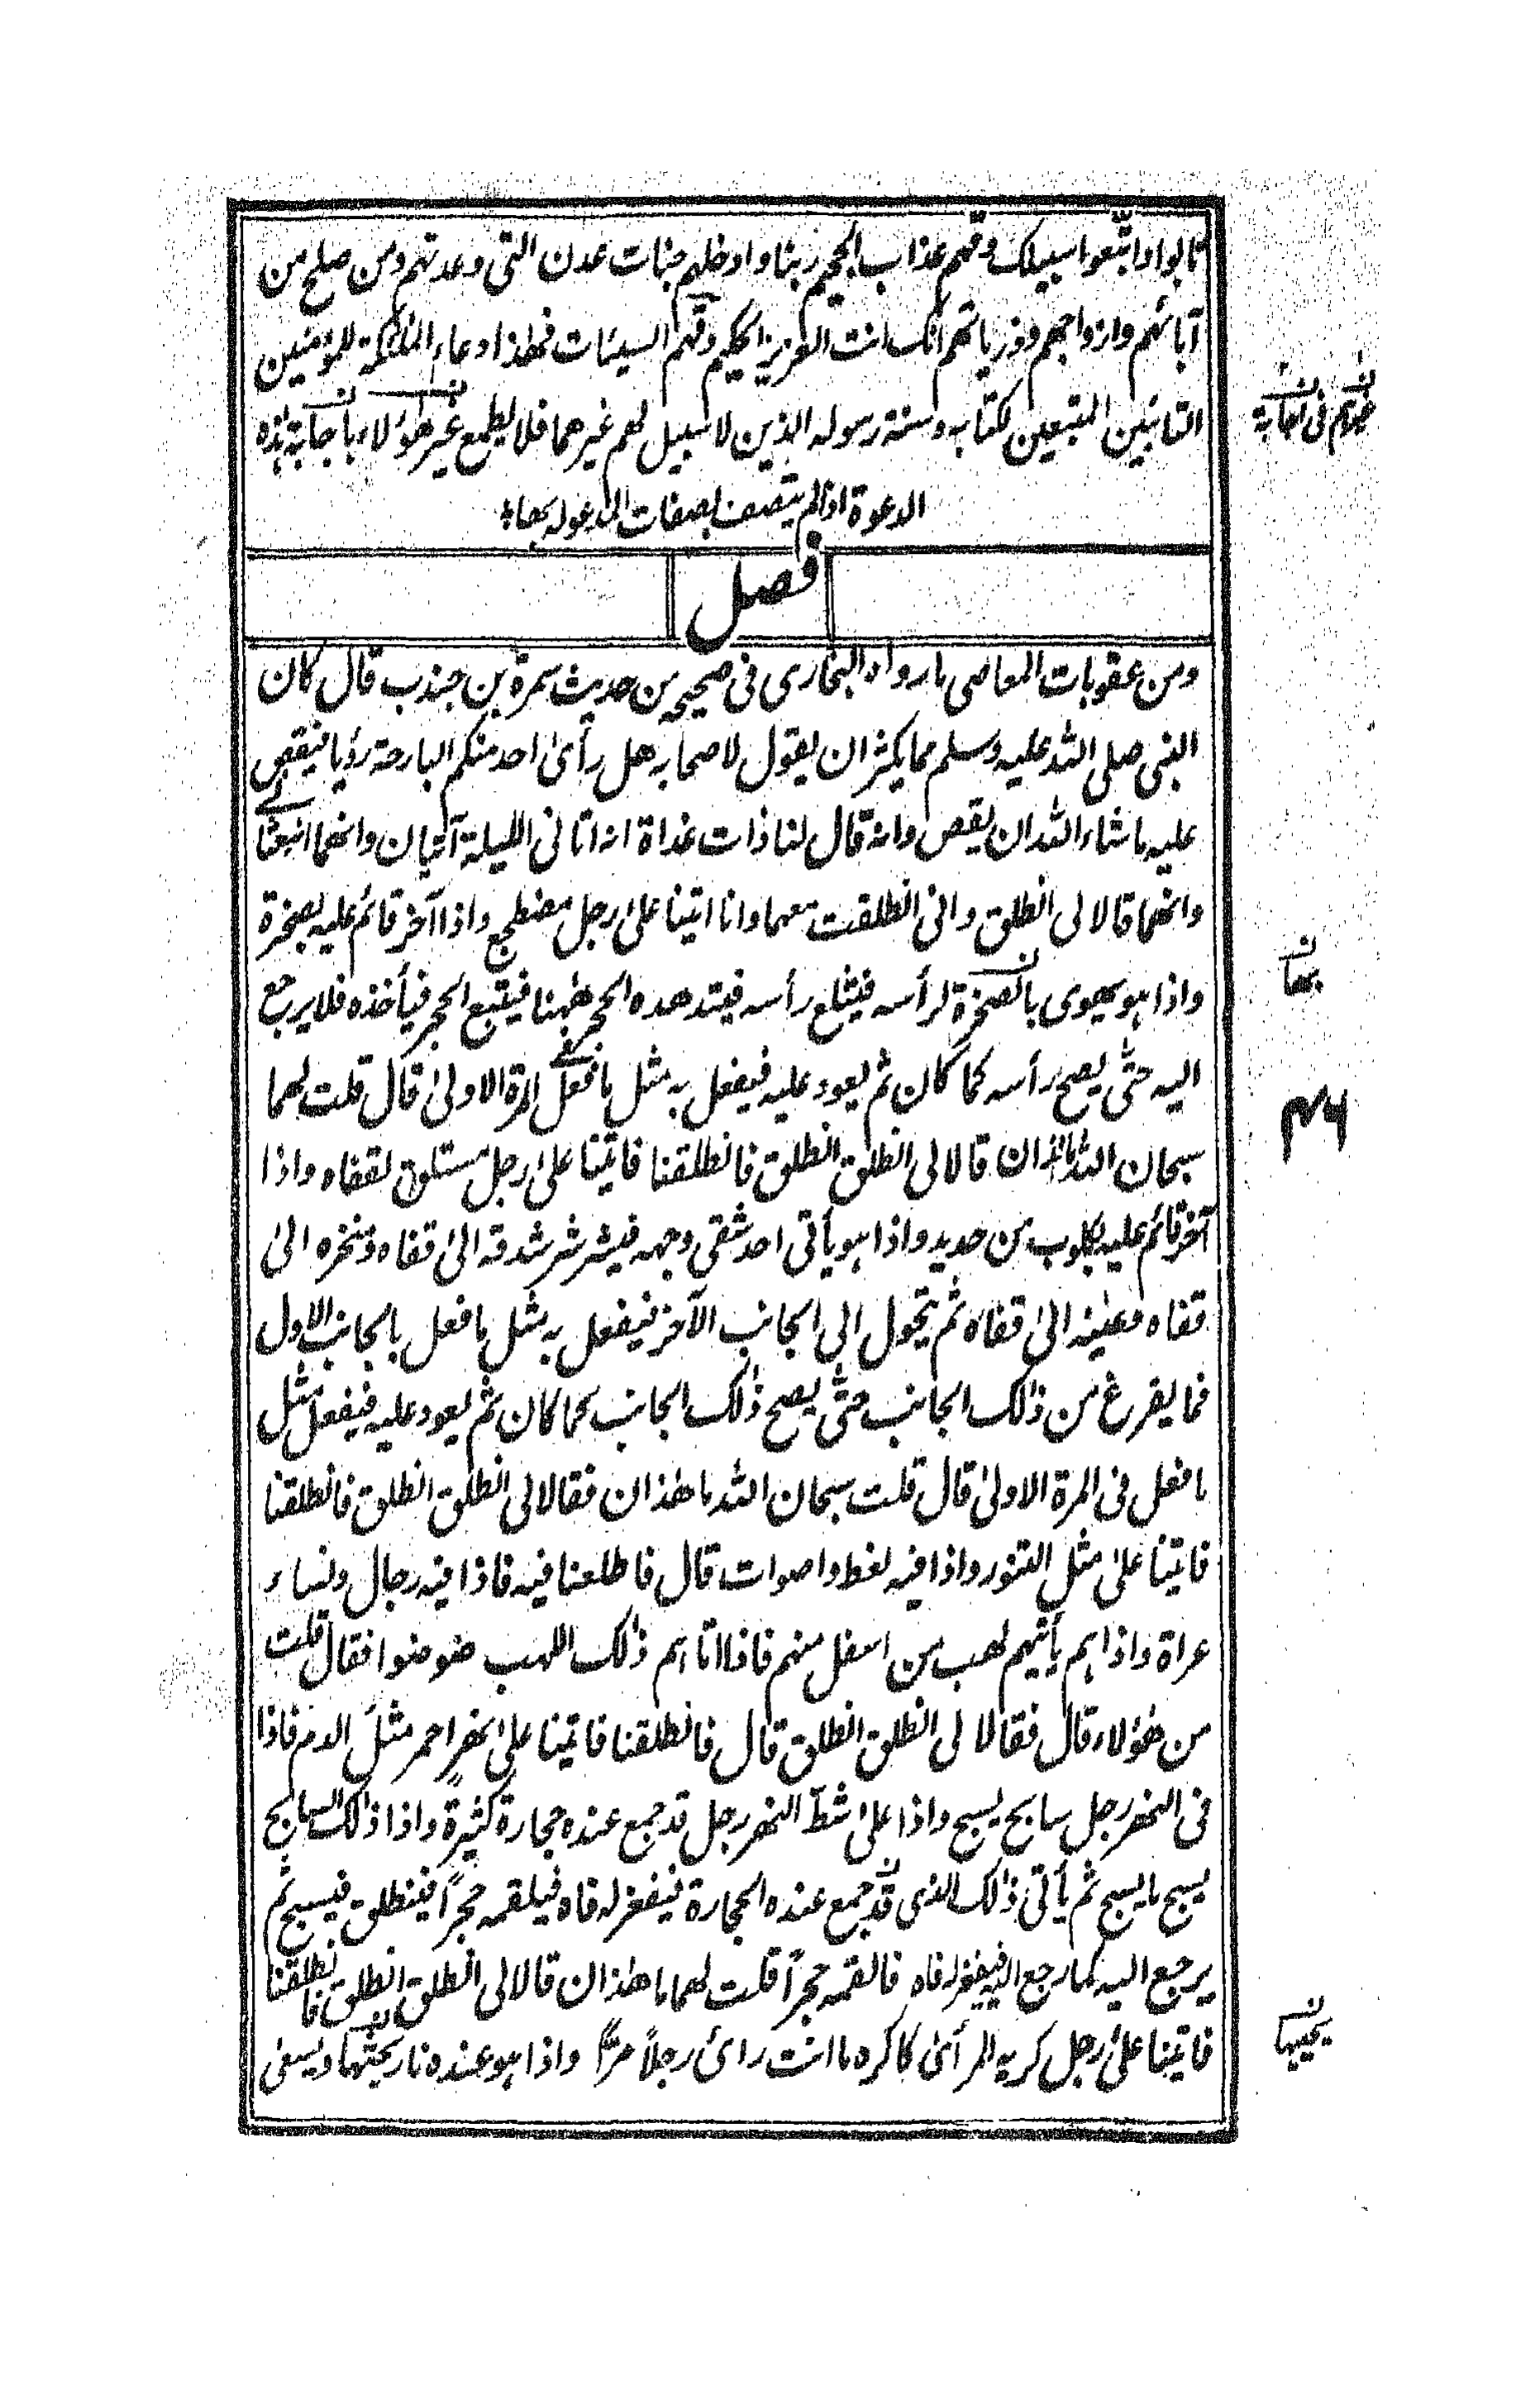 تابوا واتبعوا سبيلك وقهم عذاب الجحيم ربنا وادخلهم جنات عدن التى وعدتهم ومن صلح من
آبائهم وازواجهم وذرياتهم انك انت العزيز الحكيم وقهم السيئات فهذا دعاء الملئكة للمؤمنين
التائبين المتبعين لكتابه وسنة رسوله الذين لا سبيل لهم غيرهما فلا يطمع غير هؤلاء باجابة هذه
الدعوة اذا لم يتصف بصفات المدعو له بها
فصل
ومن عقوبات المعاصى ما رواه البخارى فى صحيحه من حديث سمرة بن جندب قال كان
النبى صلى الله عليه وسلم مما يكثر ان يقول لاصحابه هل رأىٰ احد منكم البارحة رؤيا فيقص
عليه ما شاء الله ان يقص وانه قال لنا ذات غداة انه اتانى الليلة آتيان وانهما انبعثا لى
وانهما قالا لى انطلق وانى انطلقت معهما وانا اتينا علىٰ رجل مضطجع واذا آخر قائم عليه بصخرة
واذا هو يهوى بالصخرة لرأسه فيثلع رأسه فيتدهده الحجر هٰهنا فيتبع الحجر فيأخذه فلا يرجع
اليه حتىٰ يصح رأسه كما كان ثم يعود عليه فيفعل به مثل ما فعل فى المرة الاولىٰ قال قلت لهما
سبحان الله ما هٰذان قالا لى انطلق انطلق فانطلقنا فاتينا علىٰ رجل مستلق لقفاه واذا
آخر قائم عليه بكلوب من حديد واذا هو يأتى احد شقى وجهه فيشرشر شدقه الىٰ قفاه ومنخره الىٰ
قفاه وعينه الىٰ قفاه ثم يتحول الى الجانب الآخر فيفعل به مثل ما فعل بالجانب الاول
فما يفرغ من ذٰلك الجانب حتىٰ يصح ذٰلك الجانب كما كان ثم يعود عليه فيفعل مثل
ما فعل فى المرة الاولىٰ قال قلت سبحان الله ما هٰذان فقالا لى انطلق انطلق فانطلقنا
فاتينا علىٰ مثل التنور واذا فيه لغط واصوات قال فاطلعنا فيه فاذا فيه رجال ونساء
عراة واذا هم يأتيهم لهب من اسفل منهم فاذا اتاهم ذٰلك اللهب ضوضوا فقال قلت
من هٰؤلاء قال فقالا لى انطلق انطلق قال فانطلقنا فاتينا علىٰ نهرٍ احمر مثل الدم فاذا
فى النهر رجل سابح يسبح واذا علىٰ شطّ النهر رجل قد جمع عنده حجارة كثيرة واذا ذٰلك السابح
يسبح ما يسبح ثم يأتى ذٰلك الذى قد جمع عنده الحجارة فيفغر له فاه فيلقمه حجراً فينطلق فيسبح ثم
يرجع اليه كما رجع اليه فيفغر له فاه فالقمه حجراً قلت لهما ما هٰذان قالا لى انطلق انطلق فانطلقنا
فاتينا علىٰ رجل كريه المرأى كاكره ما انت رائى رجلاً مرأً واذا هو عنده نار يحثها ويسعى
بها
۴۶